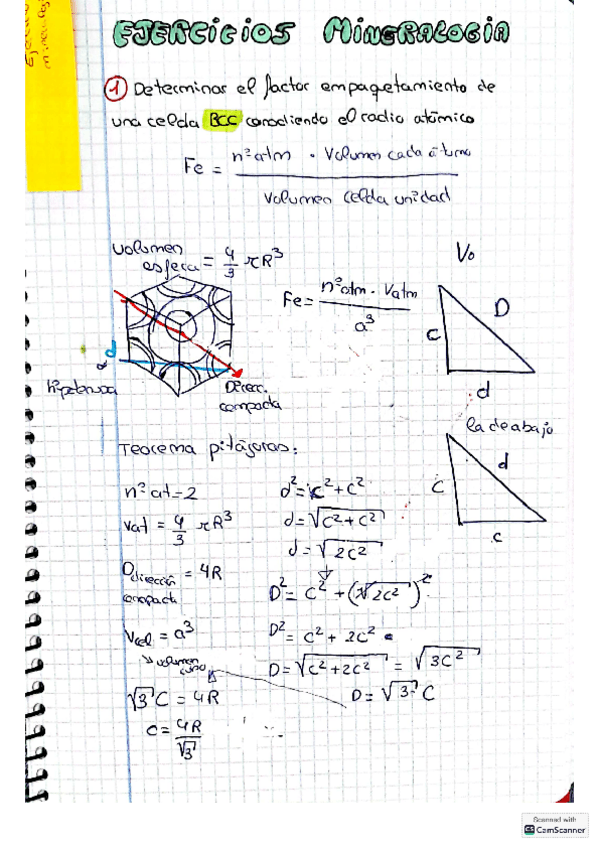 EJERCICIOS MINERALOGIA
① Determinar el factor empaquetamiento de
una celda BCC conociendo el radio atómico
Fe = nº atm · Volumen cada átomo / Volumen celda unidad
Volumen esfera = 4/3 πR³
Fe = nº atm · Vatm / a³
Vo
C D d
d
hipotenusa
Direcc. compacta
la de abajo
C d c
Teorema pitágoras:
nº at = 2
Vat = 4/3 πR³
D dirección compacta = 4R
Vcel = a³
volumen cubo
√3 C = 4R
C = 4R/√3
d² = c² + c²
d = √c² + c²
d = √2c²
D² = c² + (√2c²)²
D² = c² + 2c²
D = √c² + 2c² = √3c²
D = √3 C
Scanned with
CS CamScanner